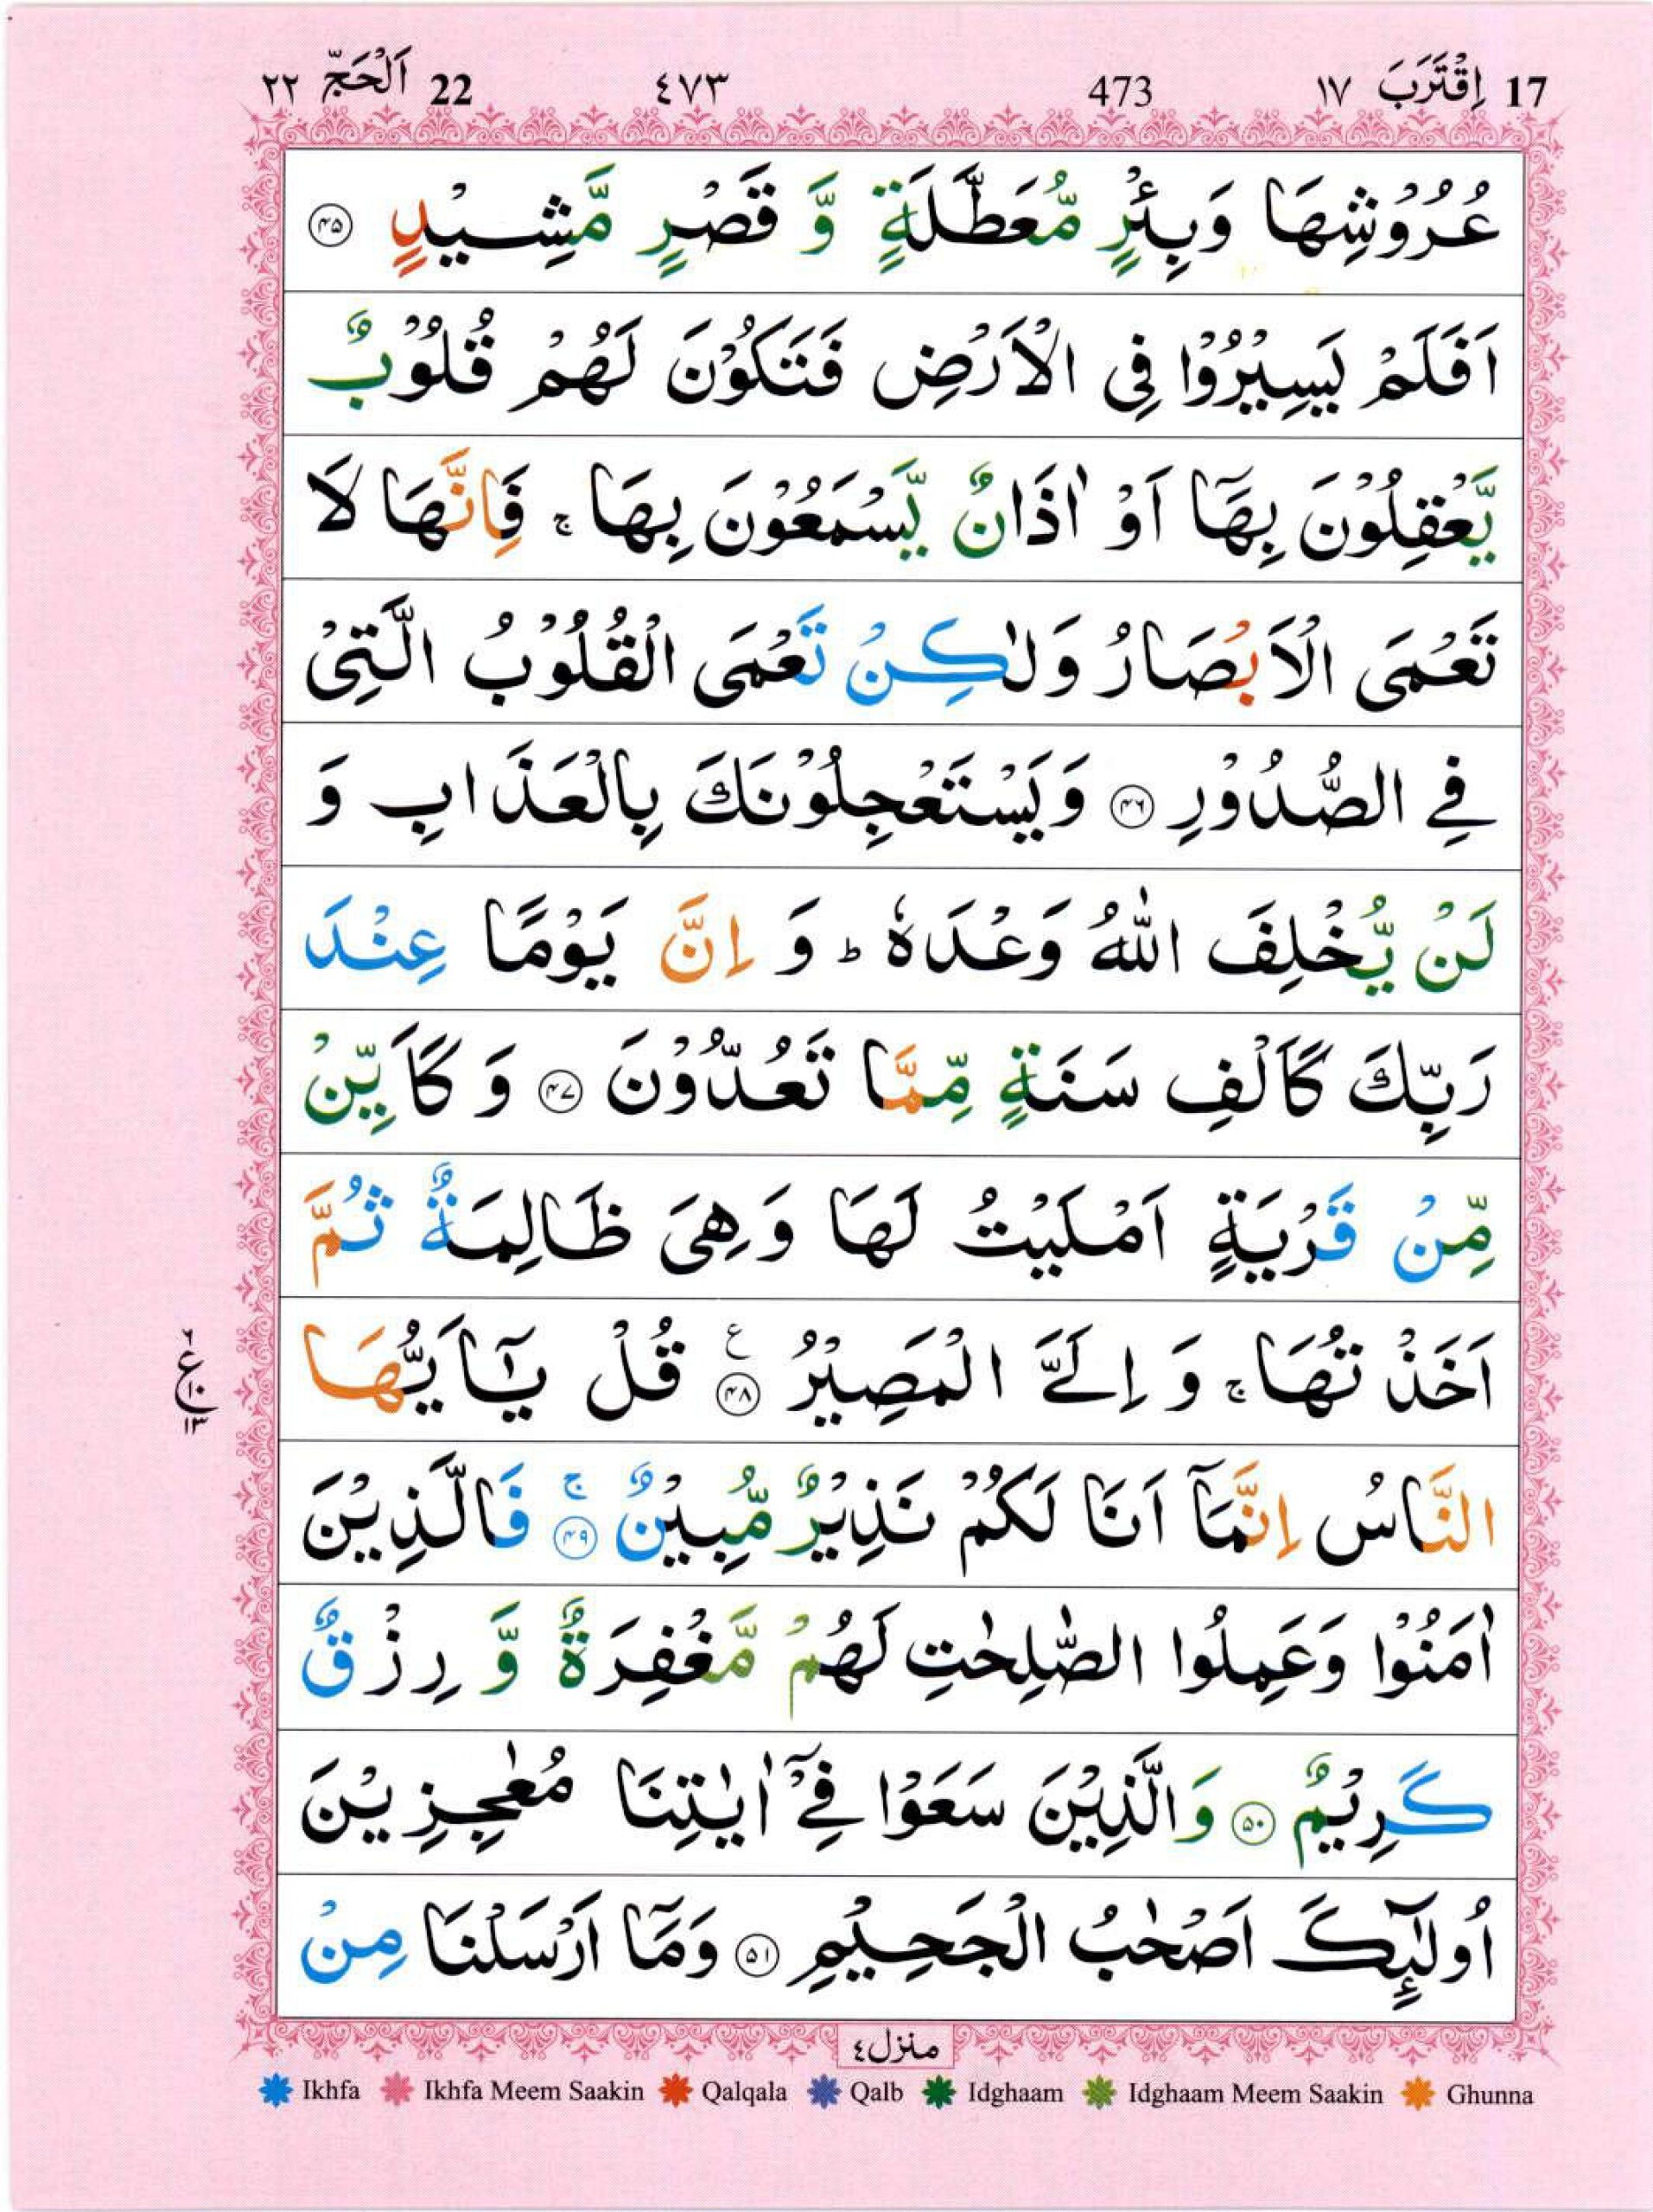 17 اِقْتَرَبَ ١٧ 473 ٤٧٣ 22 اَلْحَجّ ٢٢
عُرُوْشِهَا وَبِئْرٍ مُّعَطَّلَةٍ وَّ قَصْرٍ مَّشِيْدٍ ۴۵
اَفَلَمْ يَسِيْرُوْا فِى الْاَرْضِ فَتَكُوْنَ لَهُمْ قُلُوْبٌ
يَّعْقِلُوْنَ بِهَآ اَوْ اٰذَانٌ يَّسْمَعُوْنَ بِهَا ۚ فَاِنَّهَا لَا
تَعْمَى الْاَبْصَارُ وَلٰكِنْ تَعْمَى الْقُلُوْبُ الَّتِىْ
فِى الصُّدُوْرِ ۴۶ وَيَسْتَعْجِلُوْنَكَ بِالْعَذَابِ وَ
لَنْ يُّخْلِفَ اللّٰهُ وَعْدَهٗ ؕ وَ اِنَّ يَوْمًا عِنْدَ
رَبِّكَ كَاَلْفِ سَنَةٍ مِّمَّا تَعُدُّوْنَ ۴۷ وَ كَاَيِّنْ
مِّنْ قَرْيَةٍ اَمْلَيْتُ لَهَا وَهِىَ ظَالِمَةٌ ثُمَّ
اَخَذْتُهَا ۚ وَ اِلَىَّ الْمَصِيْرُ ۴۸ ع قُلْ يٰٓاَيُّهَا
ع ۶ ١٠ ١٣
النَّاسُ اِنَّمَآ اَنَا لَكُمْ نَذِيْرٌ مُّبِيْنٌ ۴۹ ۚ فَالَّذِيْنَ
اٰمَنُوْا وَعَمِلُوا الصّٰلِحٰتِ لَهُمْ مَّغْفِرَةٌ وَّ رِزْقٌ
كَرِيْمٌ ۵۰ وَالَّذِيْنَ سَعَوْا فِىْٓ اٰيٰتِنَا مُعٰجِزِيْنَ
اُولٰٓئِكَ اَصْحٰبُ الْجَحِيْمِ ۵۱ وَمَآ اَرْسَلْنَا مِنْ
منزل ٤
Ikhfa Ikhfa Meem Saakin Qalqala Qalb Idghaam Idghaam Meem Saakin Ghunna